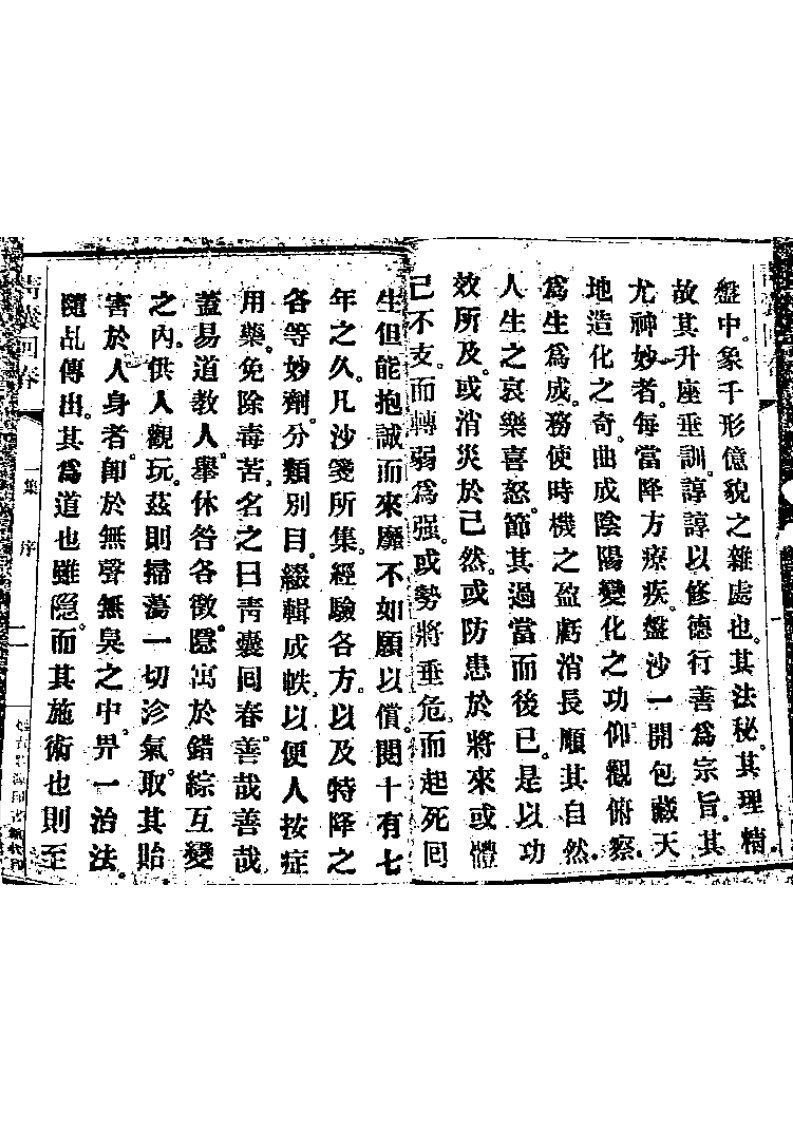 盤中。象千形億貌之雜處也。其法秘。其理精。
故其升座垂訓。諄諄以修德行善爲宗旨。其
尤神妙者。每當降方療疾。盤沙一開包藏天
地造化之奇。曲成陰陽變化之功。仰觀俯察。
爲生爲成。務使時機之盈虧消長順其自然。
人生之哀樂喜怒。節其過當而後已。是以功
效所及。或消災於已然。或防患於將來或體
己不支。而轉弱爲强。或勢將垂危。而起死回
生但能抱誠而來靡不如願以償。閱十有七
年之久。凡沙箋所集。經驗各方。以及特降之
各等妙劑。分類別目。綴輯成帙。以便人按症
用藥。免除毒苦。名之曰靑囊囘春。善哉善哉
蓋易道敎人。舉休咎各徵。隱寓於錯綜互變
之內。供人觀玩。茲則掃蕩一切沴氣。取其貽
害於人身者。卽於無聲無臭之中。畀一治法。
隨乩傳出。其爲道也雖隱。而其施術也則至
靑囊回春
一集
序
二